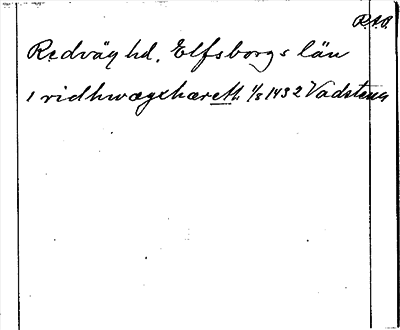 R.A.P.
Redväg hd. Elfsborgs län
i ridhwægxhæreth 1/5 1432 Vadstena